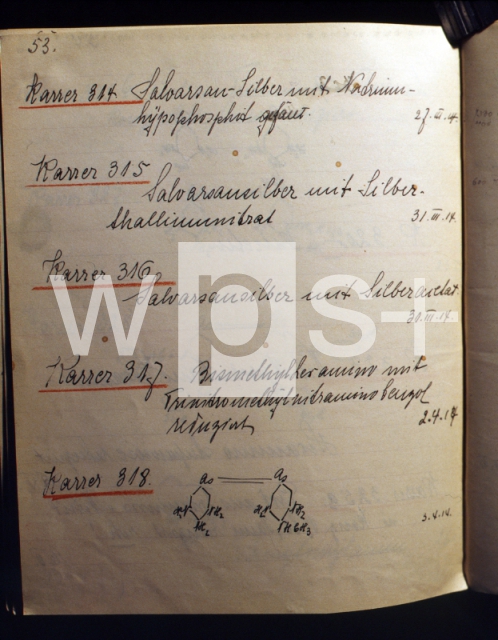 53.
Karrer 314 Salvarsan-Silber mit Natrium-
hypophosphit gefällt. 27. III. 14.
Karrer 315
Salvarsansilber mit Silber-
thalliumnitrat 31. III. 14.
Karrer 316
Salvarsansilber mit Silberacetat
30. III. 14.
Karrer 317. mit
reduziert 2.4.14
Karrer 318.
As As
H₂N NH₂ H₂N NH₂
NH₂
3.4.14.
wps+